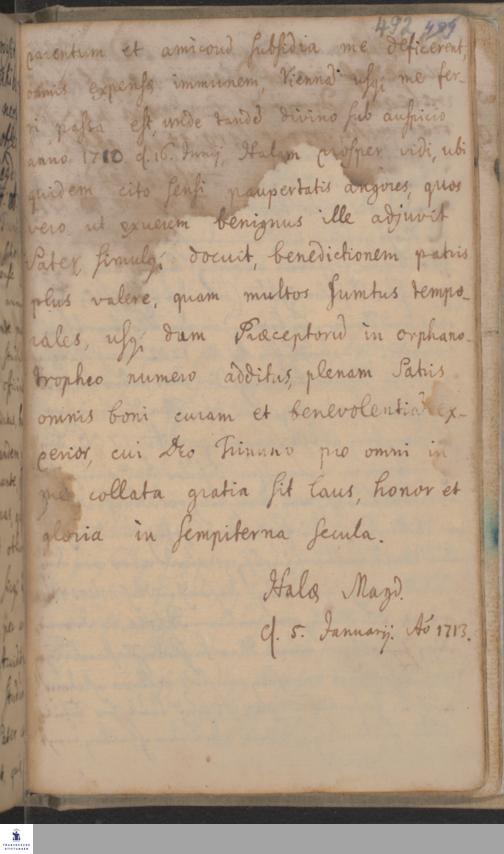 492 485
parentum et amicorū subsidia me deficerent,
omnis expensæ immunem, Viennā usq; me fer-
ri passa est, unde tandē divino sub auspicio
anno 1710 d. 16. Junij, Halam prosper vidi, ubi
quidem cito sensi paupertatis angores, quos
vero ut exuerem benignus ille adjuvit
Pater, simulq; docuit, benedictionem patris
plus valere, quam multos sumtus tempo-
rales, usq; dum Præceptorū in orphano-
tropheo numero additus, plenam Patris
omnis boni curam et benevolentiā ex-
perior, cui Deo Triuno pro omni in
me collata gratia sit laus, honor et
gloria in sempiterna secula.
Halæ Magd.
d. 5. Januarij. Aō 1713.
FRANCKESCHE
STIFTUNGEN